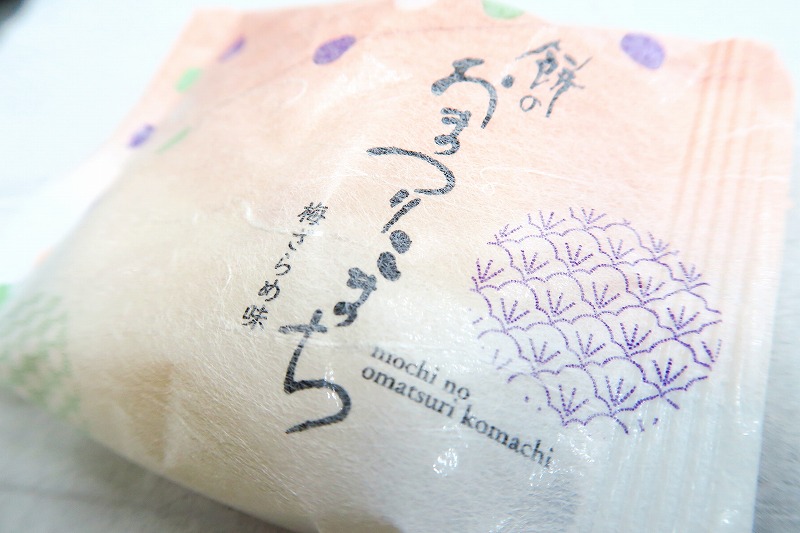 餅の
おまつりこまち
梅ざらめ味
mochi no
omatsuri komachi